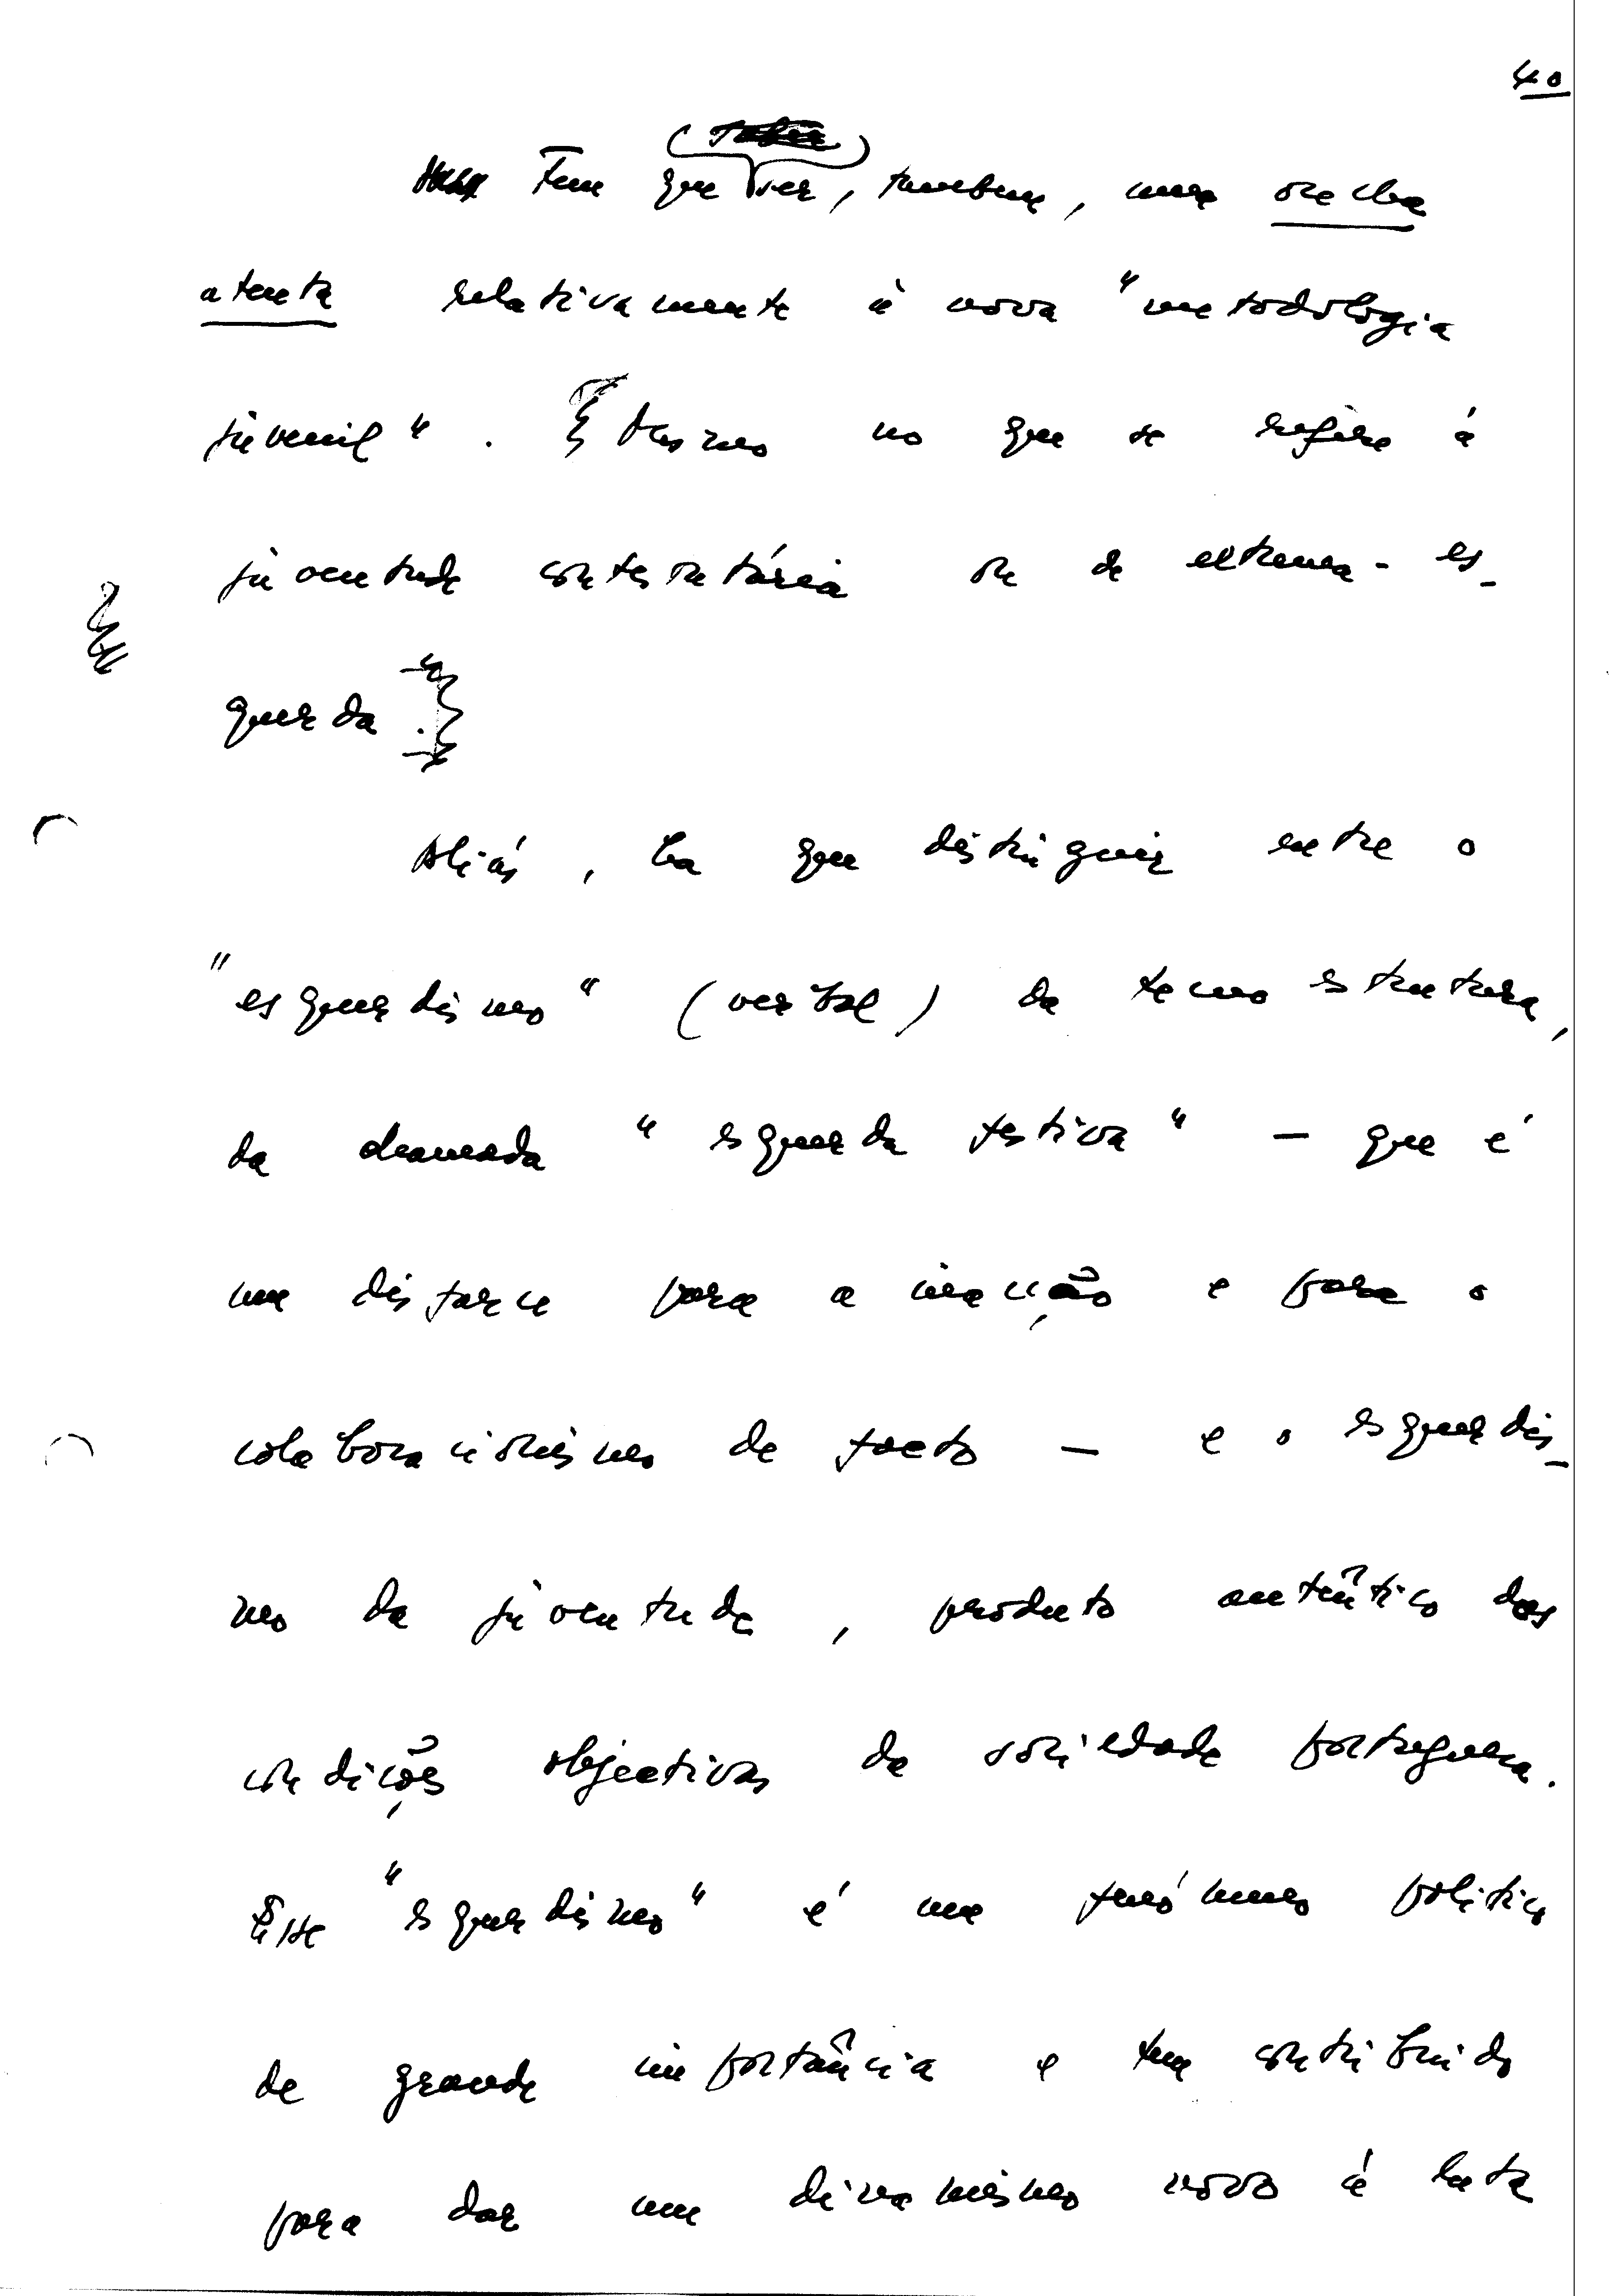 40
Tem que ver, também, uma orelha
atenta relativamente à nova "metodologia
juvenil". Mesmo no que se refere à
juventude contestatária ou de extrema-es-
querda.
Aliás, ha que distinguir entre o
"esquerdismo" (verbal) da tecnoestrutura,
da chamada "esquerda festiva" — que é
um disfarce para a inacção e para o
colaboracionismo de facto — e o esquerdis-
mo da juventude, produto autêntico das
condições objectivas da sociedade portuguesa.
Êsse "esquerdismo" é um fenómeno politico
de grande importância e tem contribuido
para dar um dinamismo novo à luta